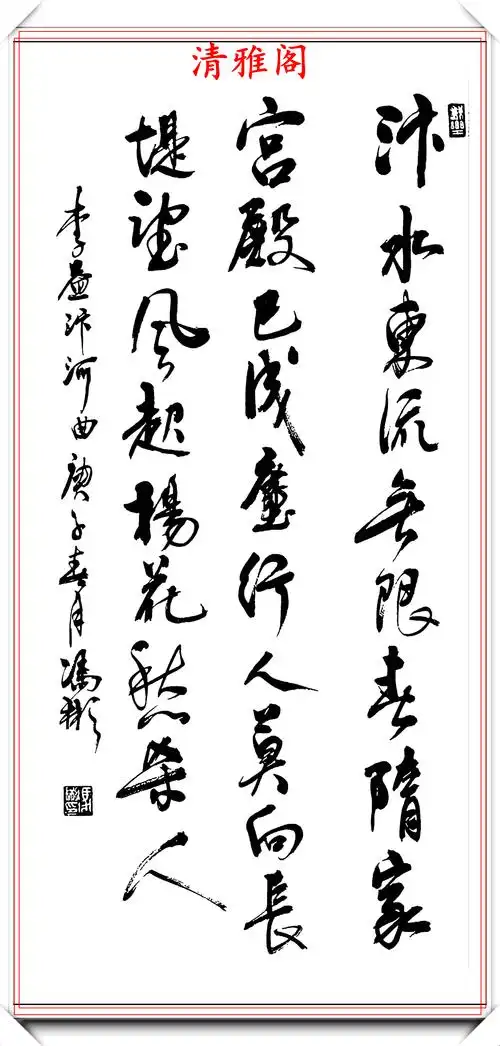 清雅阁
汴水東流無限春隋家
宮殿已成塵行人莫向長
堤望風起楊花愁煞人
李益汴河曲庚子春月馮彬